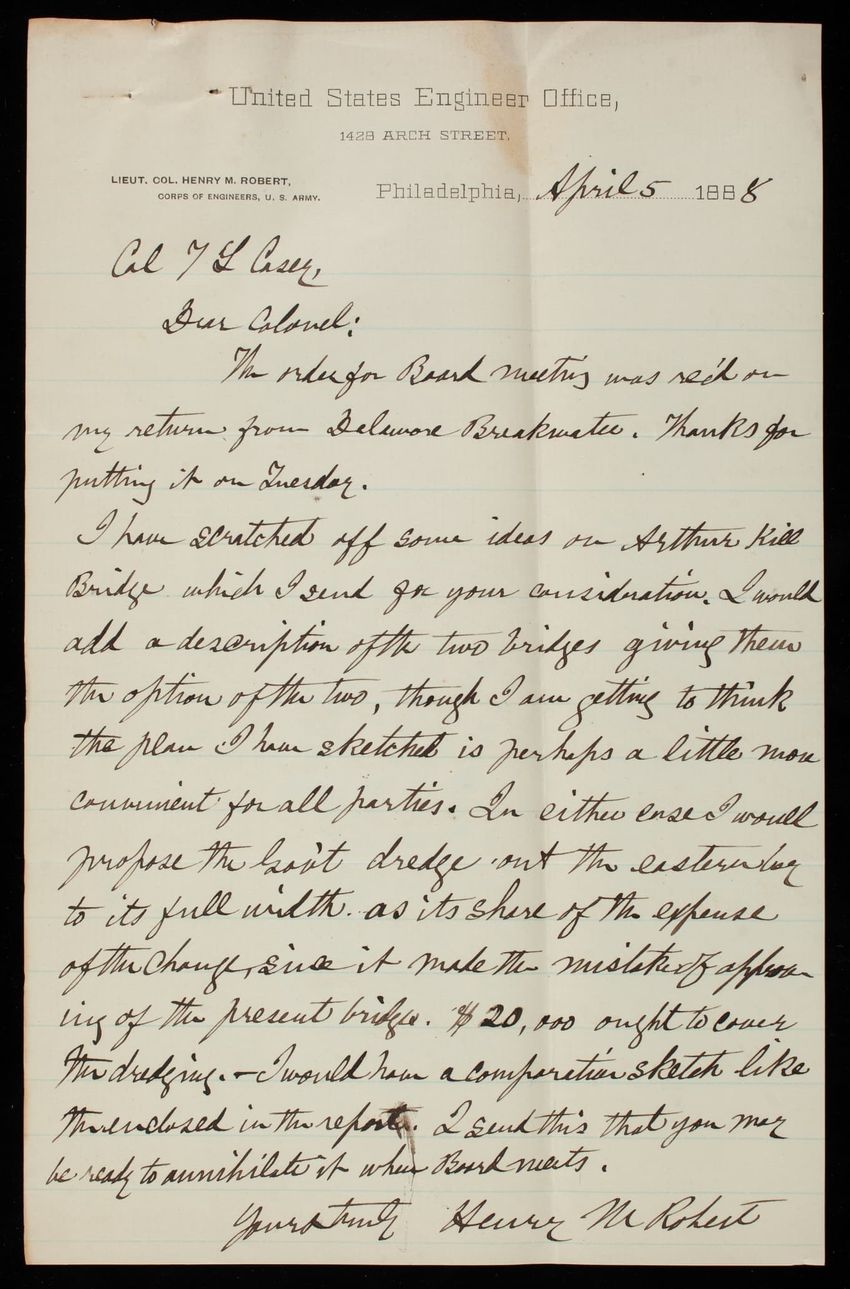 United States Engineer Office,
1428 ARCH STREET.
LIEUT. COL. HENRY M. ROBERT,
CORPS OF ENGINEERS, U. S. ARMY.
Philadelphia, April 5 1888
Col T L Casey,
Dear Colonel:
The order for Board meeting was rec'd on
my return from Delaware Breakwater. Thanks for
putting it on Tuesday.
I have scratched off some ideas on Arthur Kill
Bridge which I send for your consideration. I would
add a description of the two bridges giving them
the option of the two, though I am getting to think
the plan I have sketched is perhaps a little more
convenient for all parties. In either case I would
propose the Gov't dredge out the eastern
to its full width as its share of the expense
of the change, since it made the mistake of approv-
ing of the present bridge. $20,000 ought to cover
the dredging. – I would have a comparative sketch like
the enclosed in the report. I send this that you may
be ready to annihilate it when Board meets.
Yours truly Henry M Robert